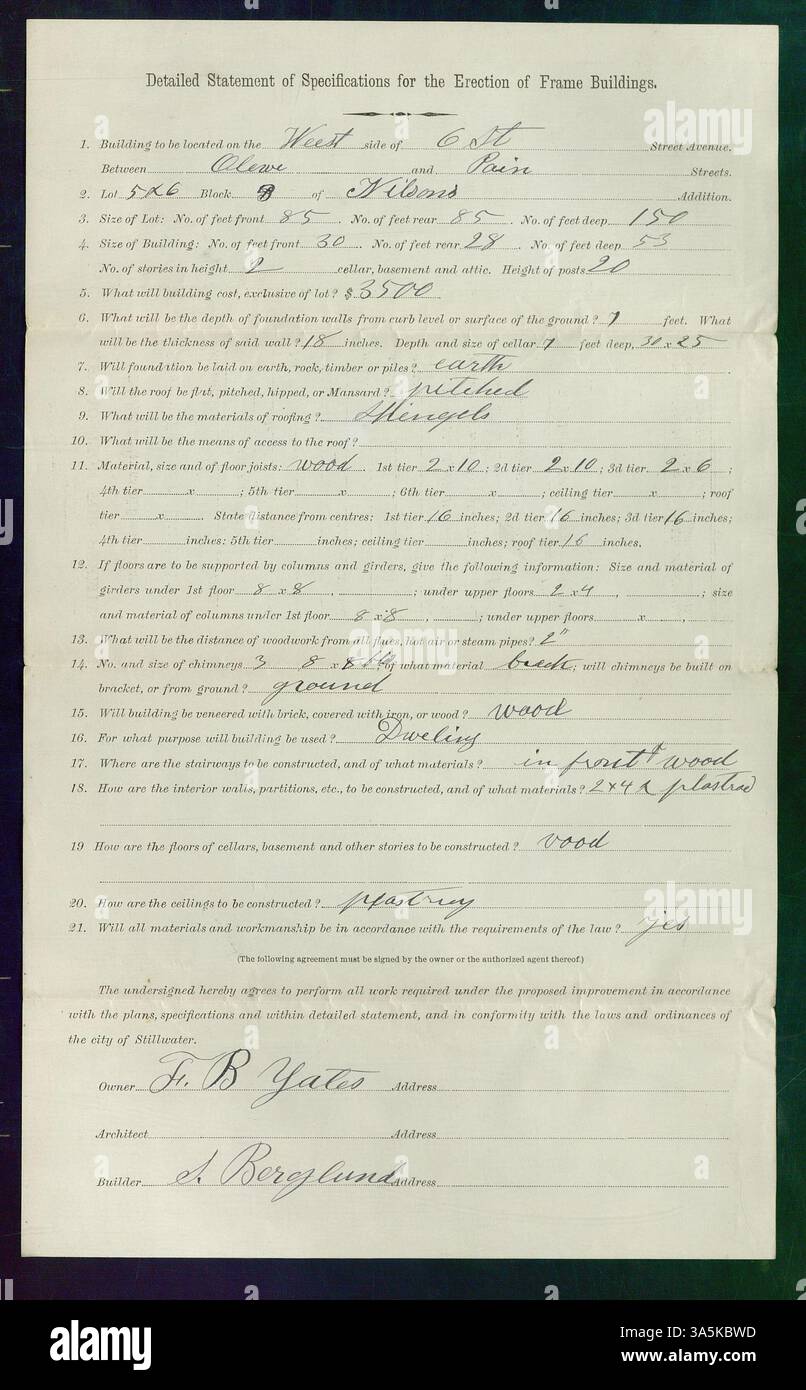 Detailed Statement of Specifications for the Erection of Frame Buildings.
1. Building to be located on the Weest side of 6 St Street Avenue.
Between Olewe and Pain Streets.
2. Lot 5 & 6 Block of Nilsons Addition.
3. Size of Lot: No. of feet front 85. No. of feet rear 85. No. of feet deep 150
4. Size of Building: No. of feet front 30. No. of feet rear 28. No. of feet deep 53
No. of stories in height 2 cellar, basement and attic. Height of posts 20
5. What will building cost, exclusive of lot? $ 3500
6. What will be the depth of foundation walls from curb level or surface of the ground? 7 feet. What
will be the thickness of said wall? 18 inches. Depth and size of cellar 7 feet deep, 30 x 25
7. Will foundation be laid on earth, rock, timber or piles? earth
8. Will the roof be flat, pitched, hipped, or Mansard? pitched
9. What will be the materials of roofing? Shengels
10. What will be the means of access to the roof?
11. Material, size and of floor joists: wood. 1st tier 2 x 10; 2d tier 2 x 10; 3d tier 2 x 6;
4th tier x ; 5th tier x ; 6th tier x ; ceiling tier x ; roof
tier x . State distance from centres: 1st tier 16 inches; 2d tier 16 inches; 3d tier 16 inches;
4th tier inches: 5th tier inches; ceiling tier inches; roof tier 16 inches.
12. If floors are to be supported by columns and girders, give the following information: Size and material of
girders under 1st floor 8 x 8 , ; under upper floors 2 x 4 , ; size
and material of columns under 1st floor 8 x 8 , ; under upper floors x ,
13. What will be the distance of woodwork from all flues, hot air or steam pipes? 2"
14. No. and size of chimneys 3 8 x of what material breck; will chimneys be built on
bracket, or from ground? ground
15. Will building be veneered with brick, covered with iron, or wood? wood
16. For what purpose will building be used? Dweling
17. Where are the stairways to be constructed, and of what materials? in front & wood
18. How are the interior walls, partitions, etc., to be constructed, and of what materials? 2x4 & plastrad
19 How are the floors of cellars, basement and other stories to be constructed? vood
20. How are the ceilings to be constructed? plastrey
21. Will all materials and workmanship be in accordance with the requirements of the law? yes
(The following agreement must be signed by the owner or the authorized agent thereof.)
The undersigned hereby agrees to perform all work required under the proposed improvement in accordance
with the plans, specifications and within detailed statement, and in conformity with the laws and ordinances of
the city of Stillwater.
Owner F. B Yates Address
Architect Address
Builder S. Berglund Address
alamy
Image ID: 3A5KBWD
www.alamy.com